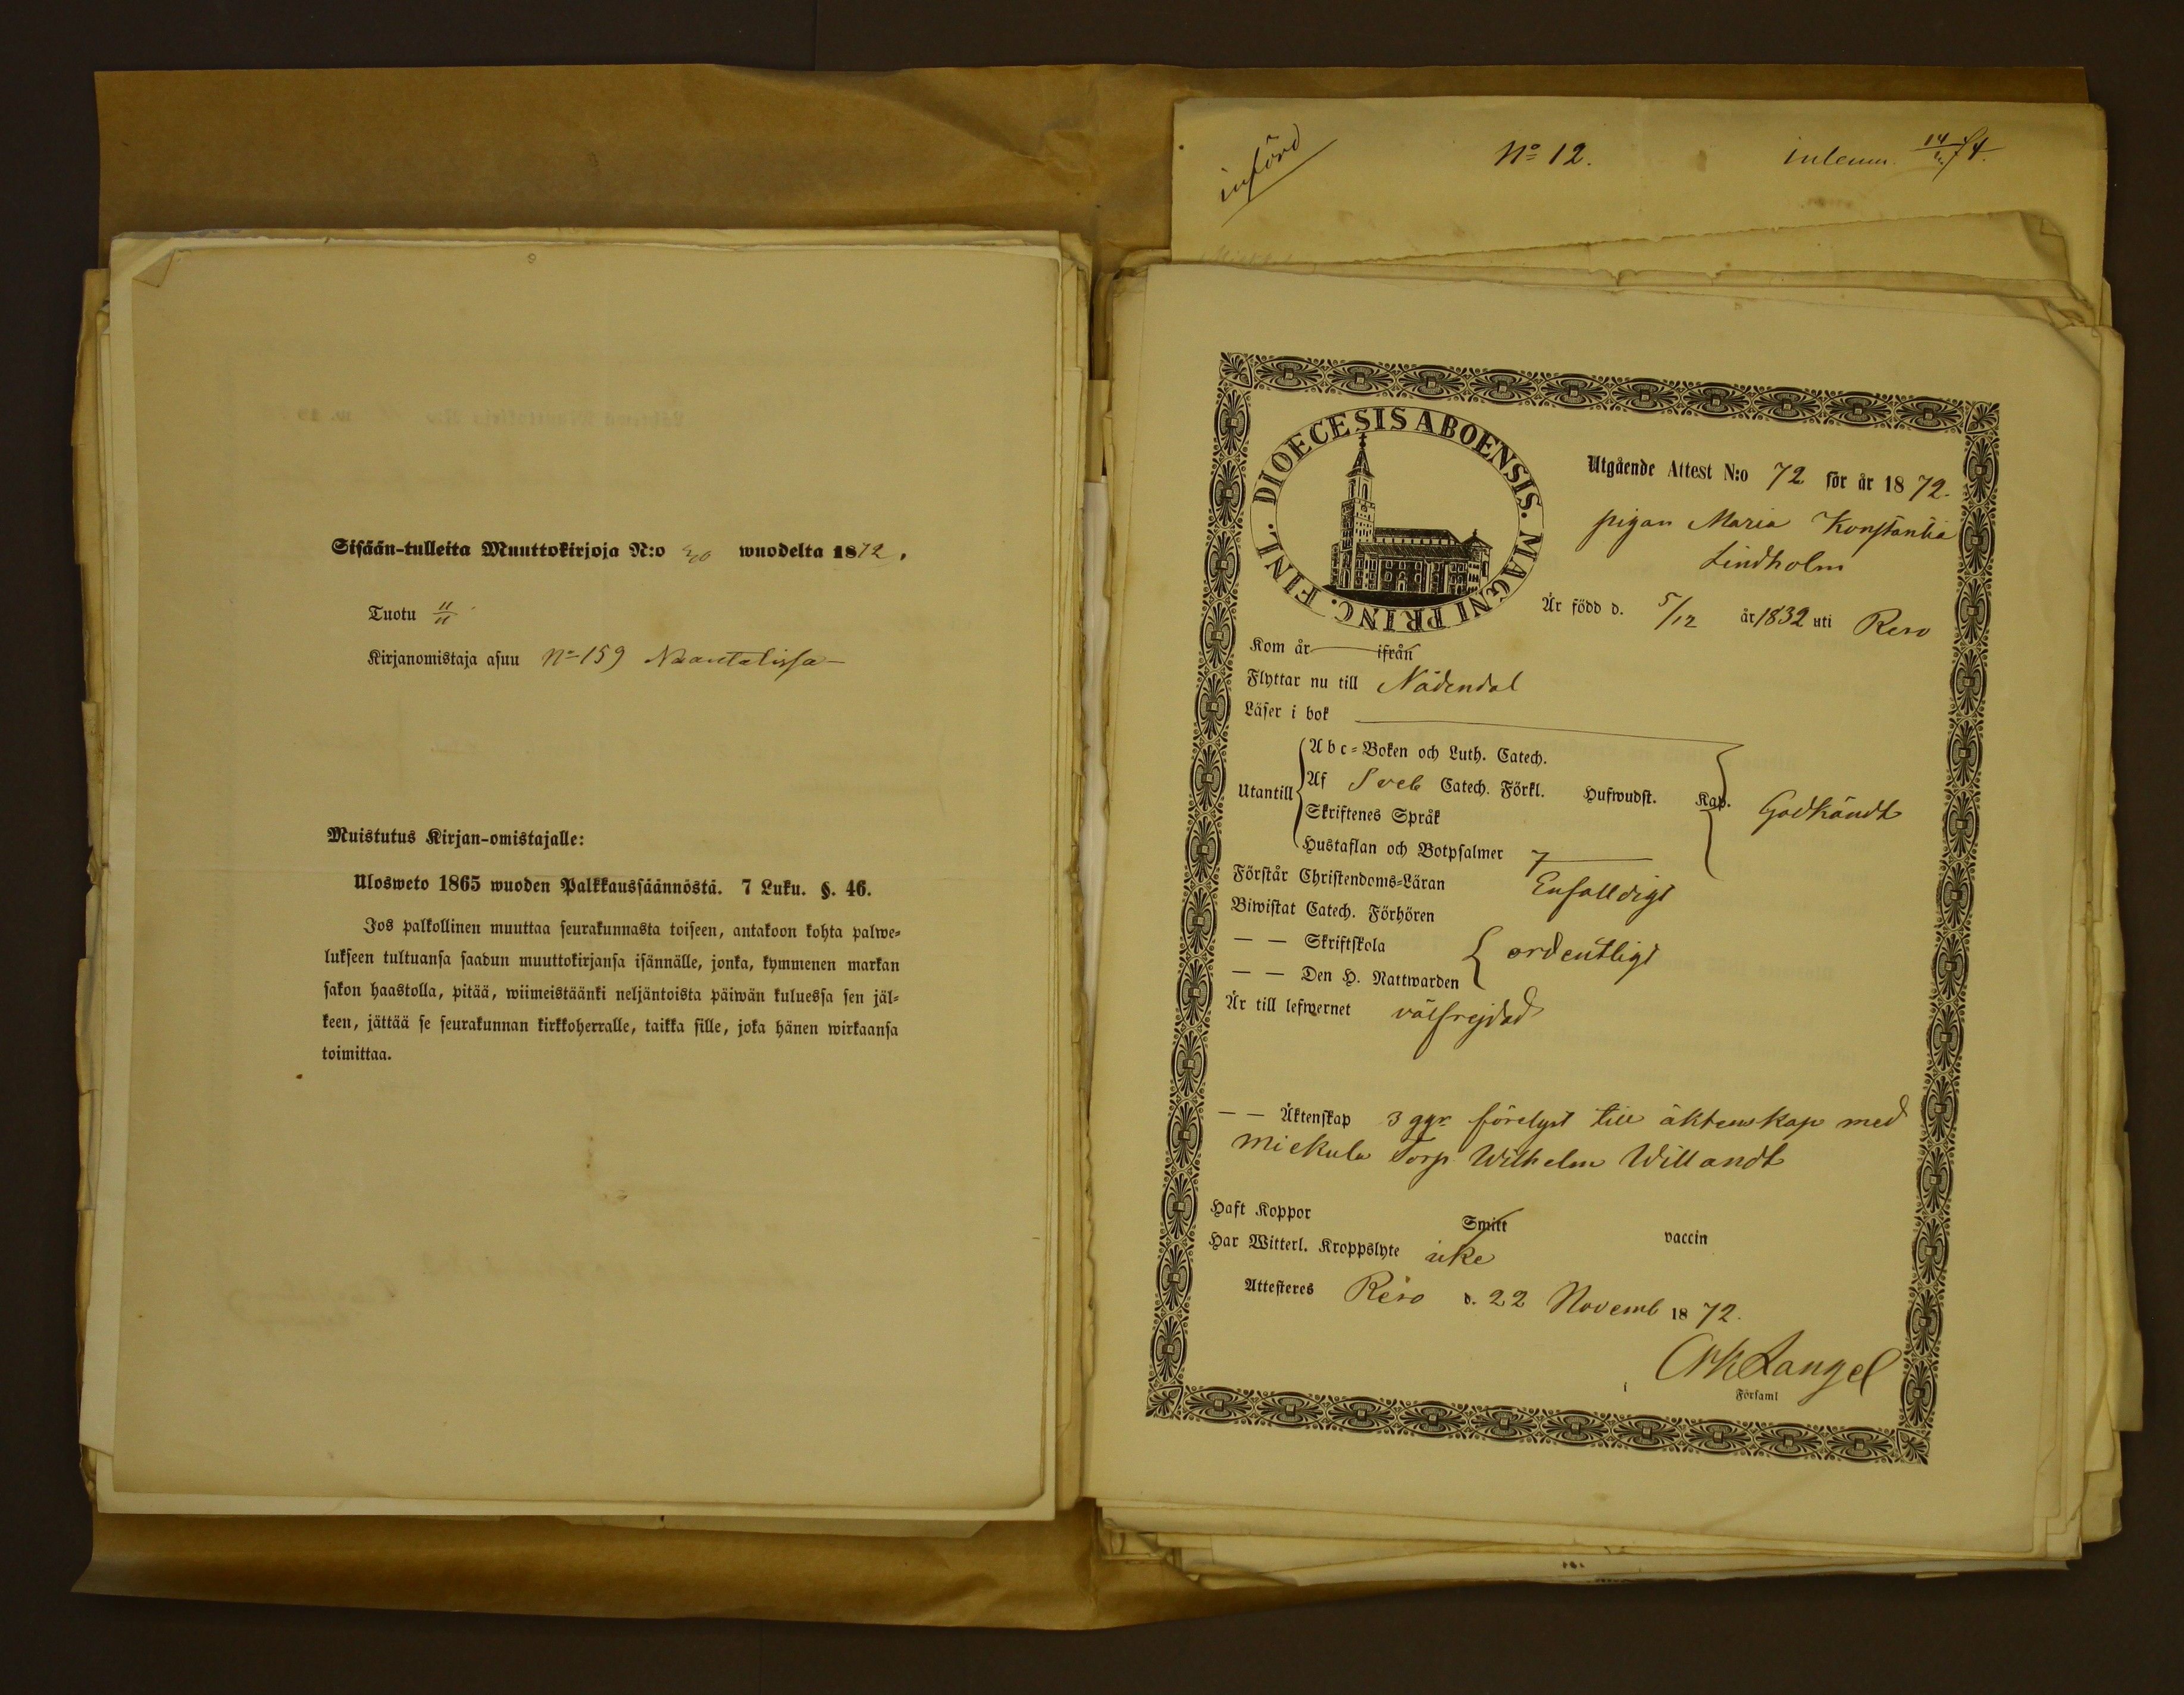 Sisään-tulleita Muuttokirjoja N:o 30 wuodelta 1872.
Tuotu 11/11
Kirjanomistaja asuu No 159 Naantalissa
Muistutus Kirjan-omistajalle:
Ulosweto 1865 wuoden Palkkaussäännöstä. 7 Luku. §. 46.
Jos palkollinen muuttaa seurakunnasta toiseen, antakoon kohta palwe-
lukseen tultuansa saadun muuttokirjansa isännälle, jonka, kymmenen markan
sakon haastolla, pitää, wiimeistäänki neljäntoista päiwän kuluessa sen jäl-
keen, jättää se seurakunnan kirkkoherralle, taikka sille, joka hänen wirkaansa
toimittaa.
införd No 12. inlemn. 74.
DIOECESIS ABOENSIS. MAGNI PRINC. FINL.
Utgående Attest N:o 72 för år 1872.
pigan Maria Konstantia
Lindholm
Är född d. 5/12 år 1832 uti Reso
Kom år ifrån
Flyttar nu till Nådendal
Läser i bok
Utantill
Abc-Boken och Luth. Catech.
Af Sveb Catech. Förkl. Hufwudst. Kap. Godkändt
Skriftenes Språk
Hustaflan och Botpsalmer 7
Förstår Christendoms-Läran Enfalldigt
Biwistat Catech. Förhören
— — Skriftskola ordentligt
— — Den H. Nattwarden
Är till lefwernet välfrejdad
— — Äktenskap 3 ggr förelyst till äktenskap med
Miekula Torp. Wilhelm Willandt
Haft Koppor Smitt vaccin
Har Witterl. Kroppslyte icke
Attesteres Reso d. 22 Novemb 1872.
Langel
i Församl